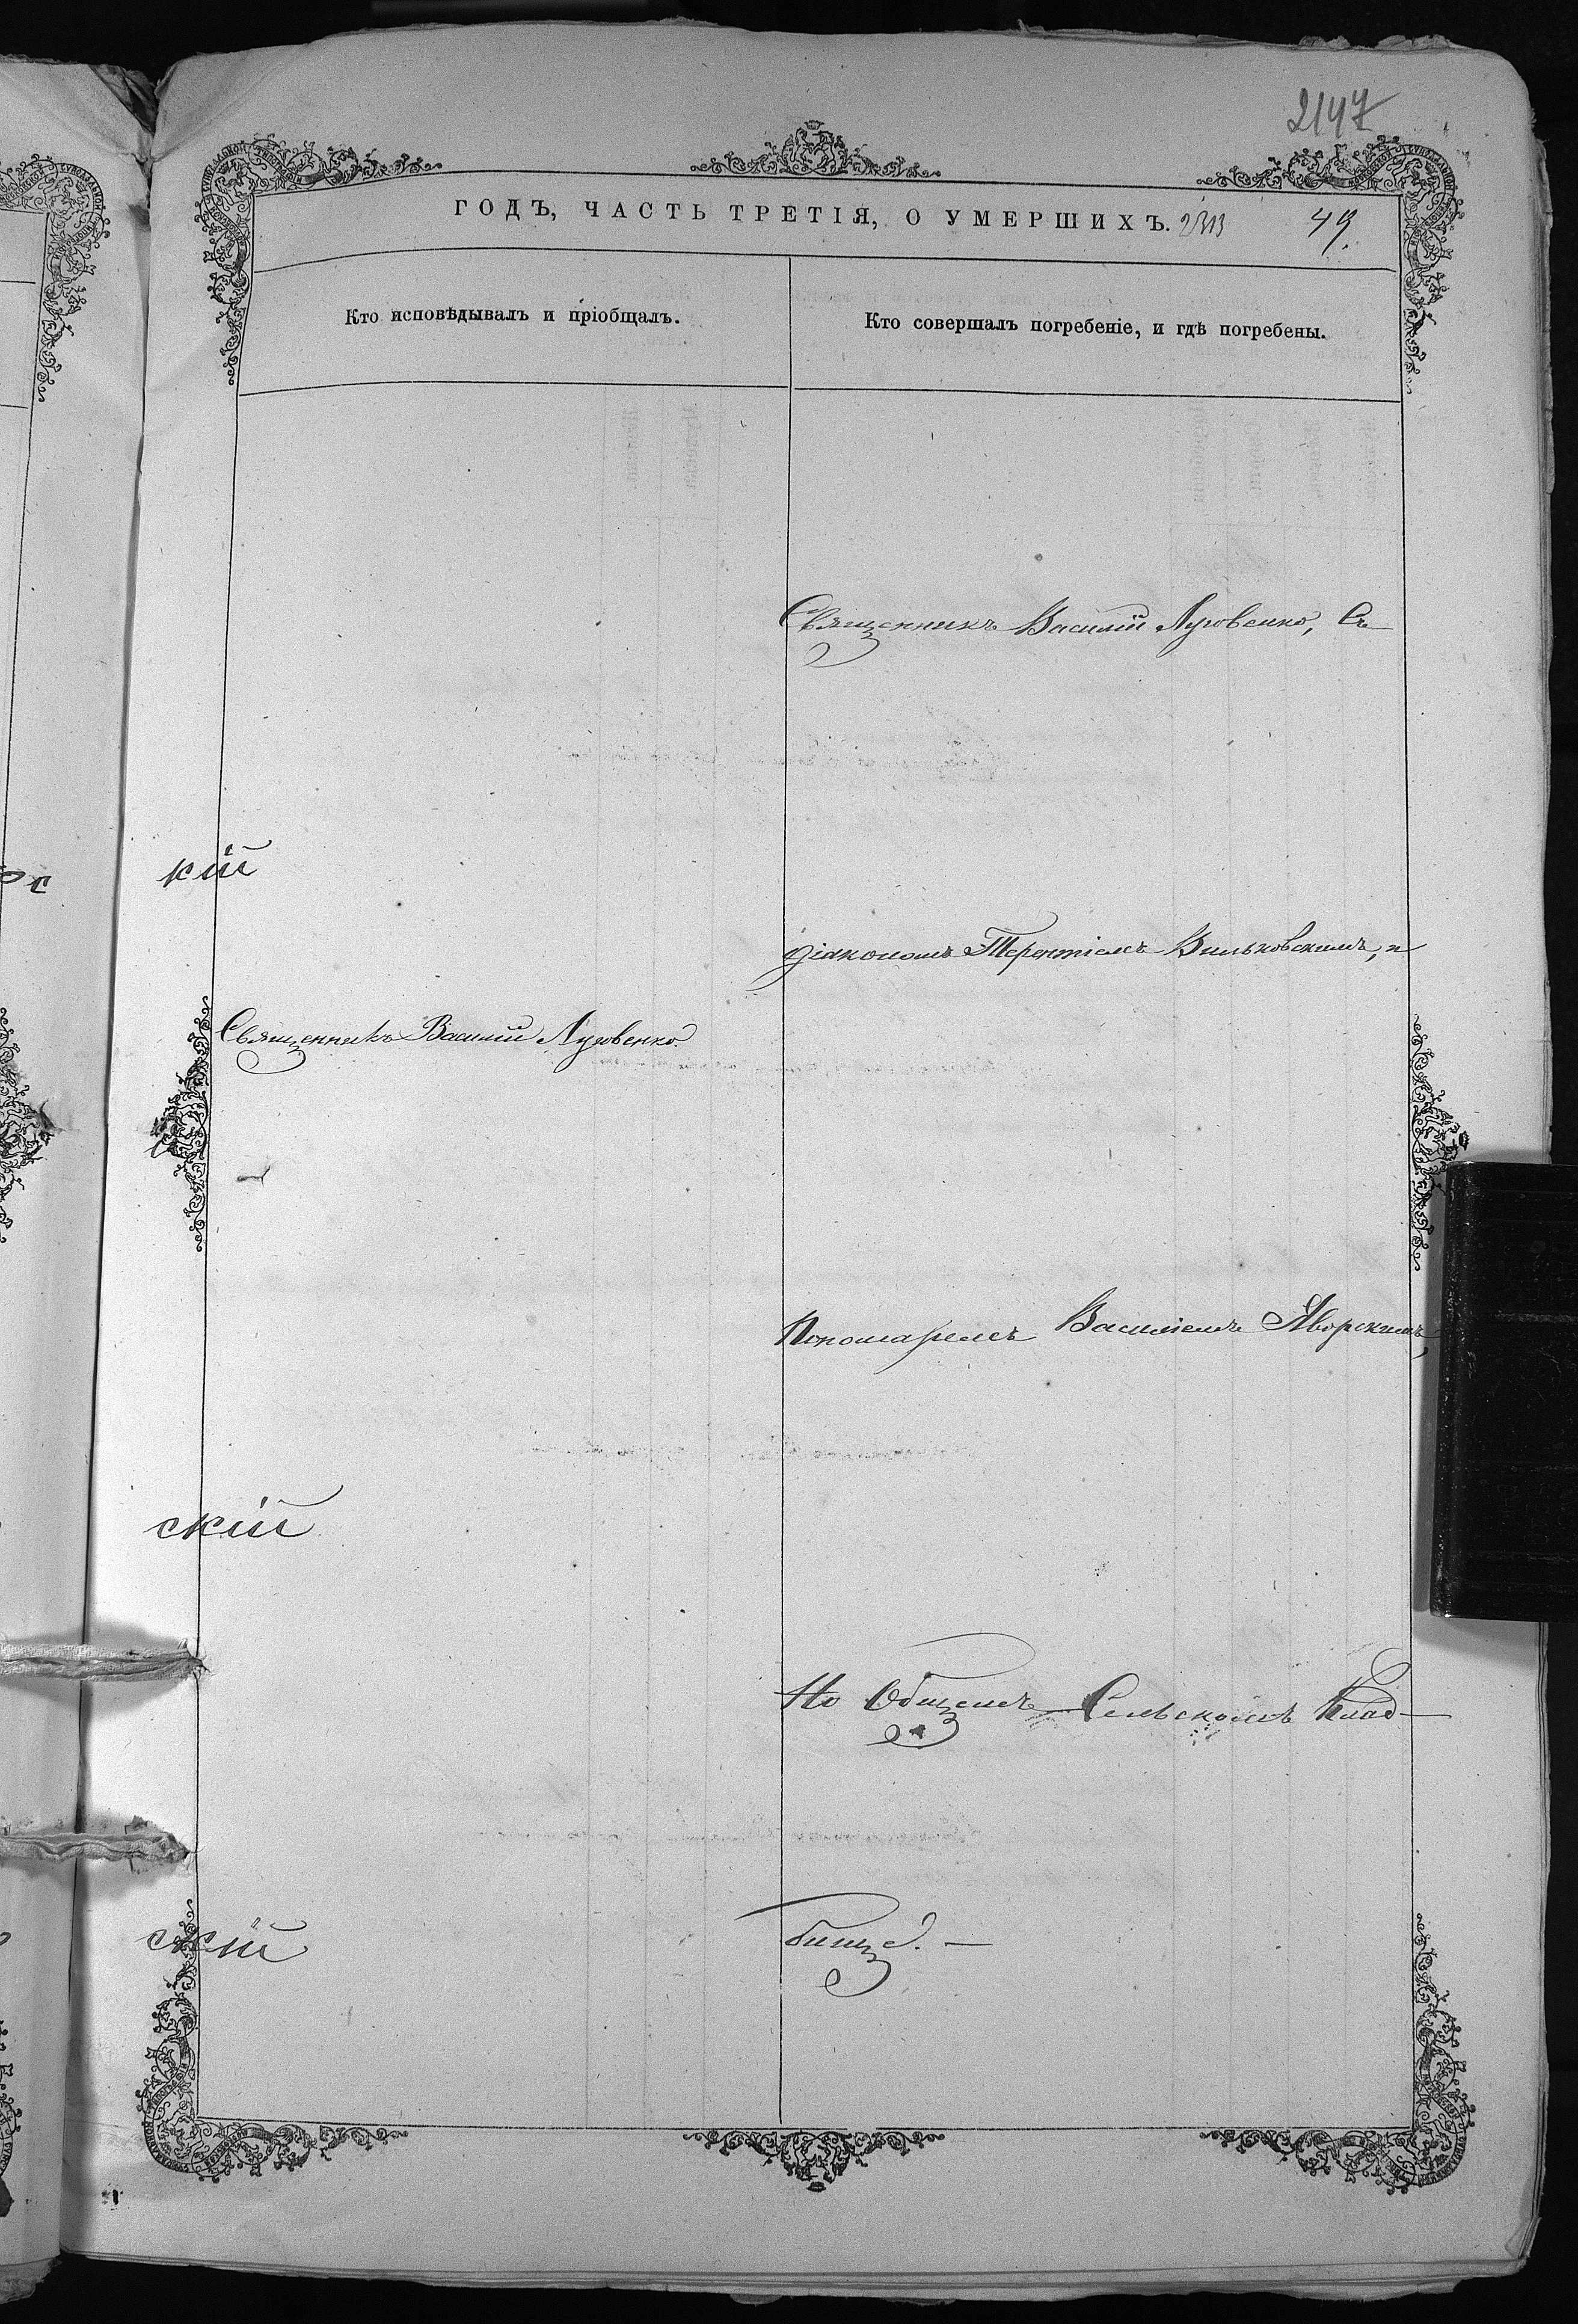 2147
ГОДЪ, ЧАСТЬ ТРЕТІЯ, О УМЕРШИХЪ. 49.
Кто исповѣдывалъ и пріобщалъ.
Кто совершалъ погребеніе, и гдѣ погребены.
Священникъ Василій Луговенко, Съ
кій
діакономъ Терентіемъ Вильковскимъ, и
Священникъ Василій Луговенко.
Пономаремъ Василіемъ Яворскимъ,
скій
На Общемъ Сельскомъ Клад-
скій
бищѣ. —